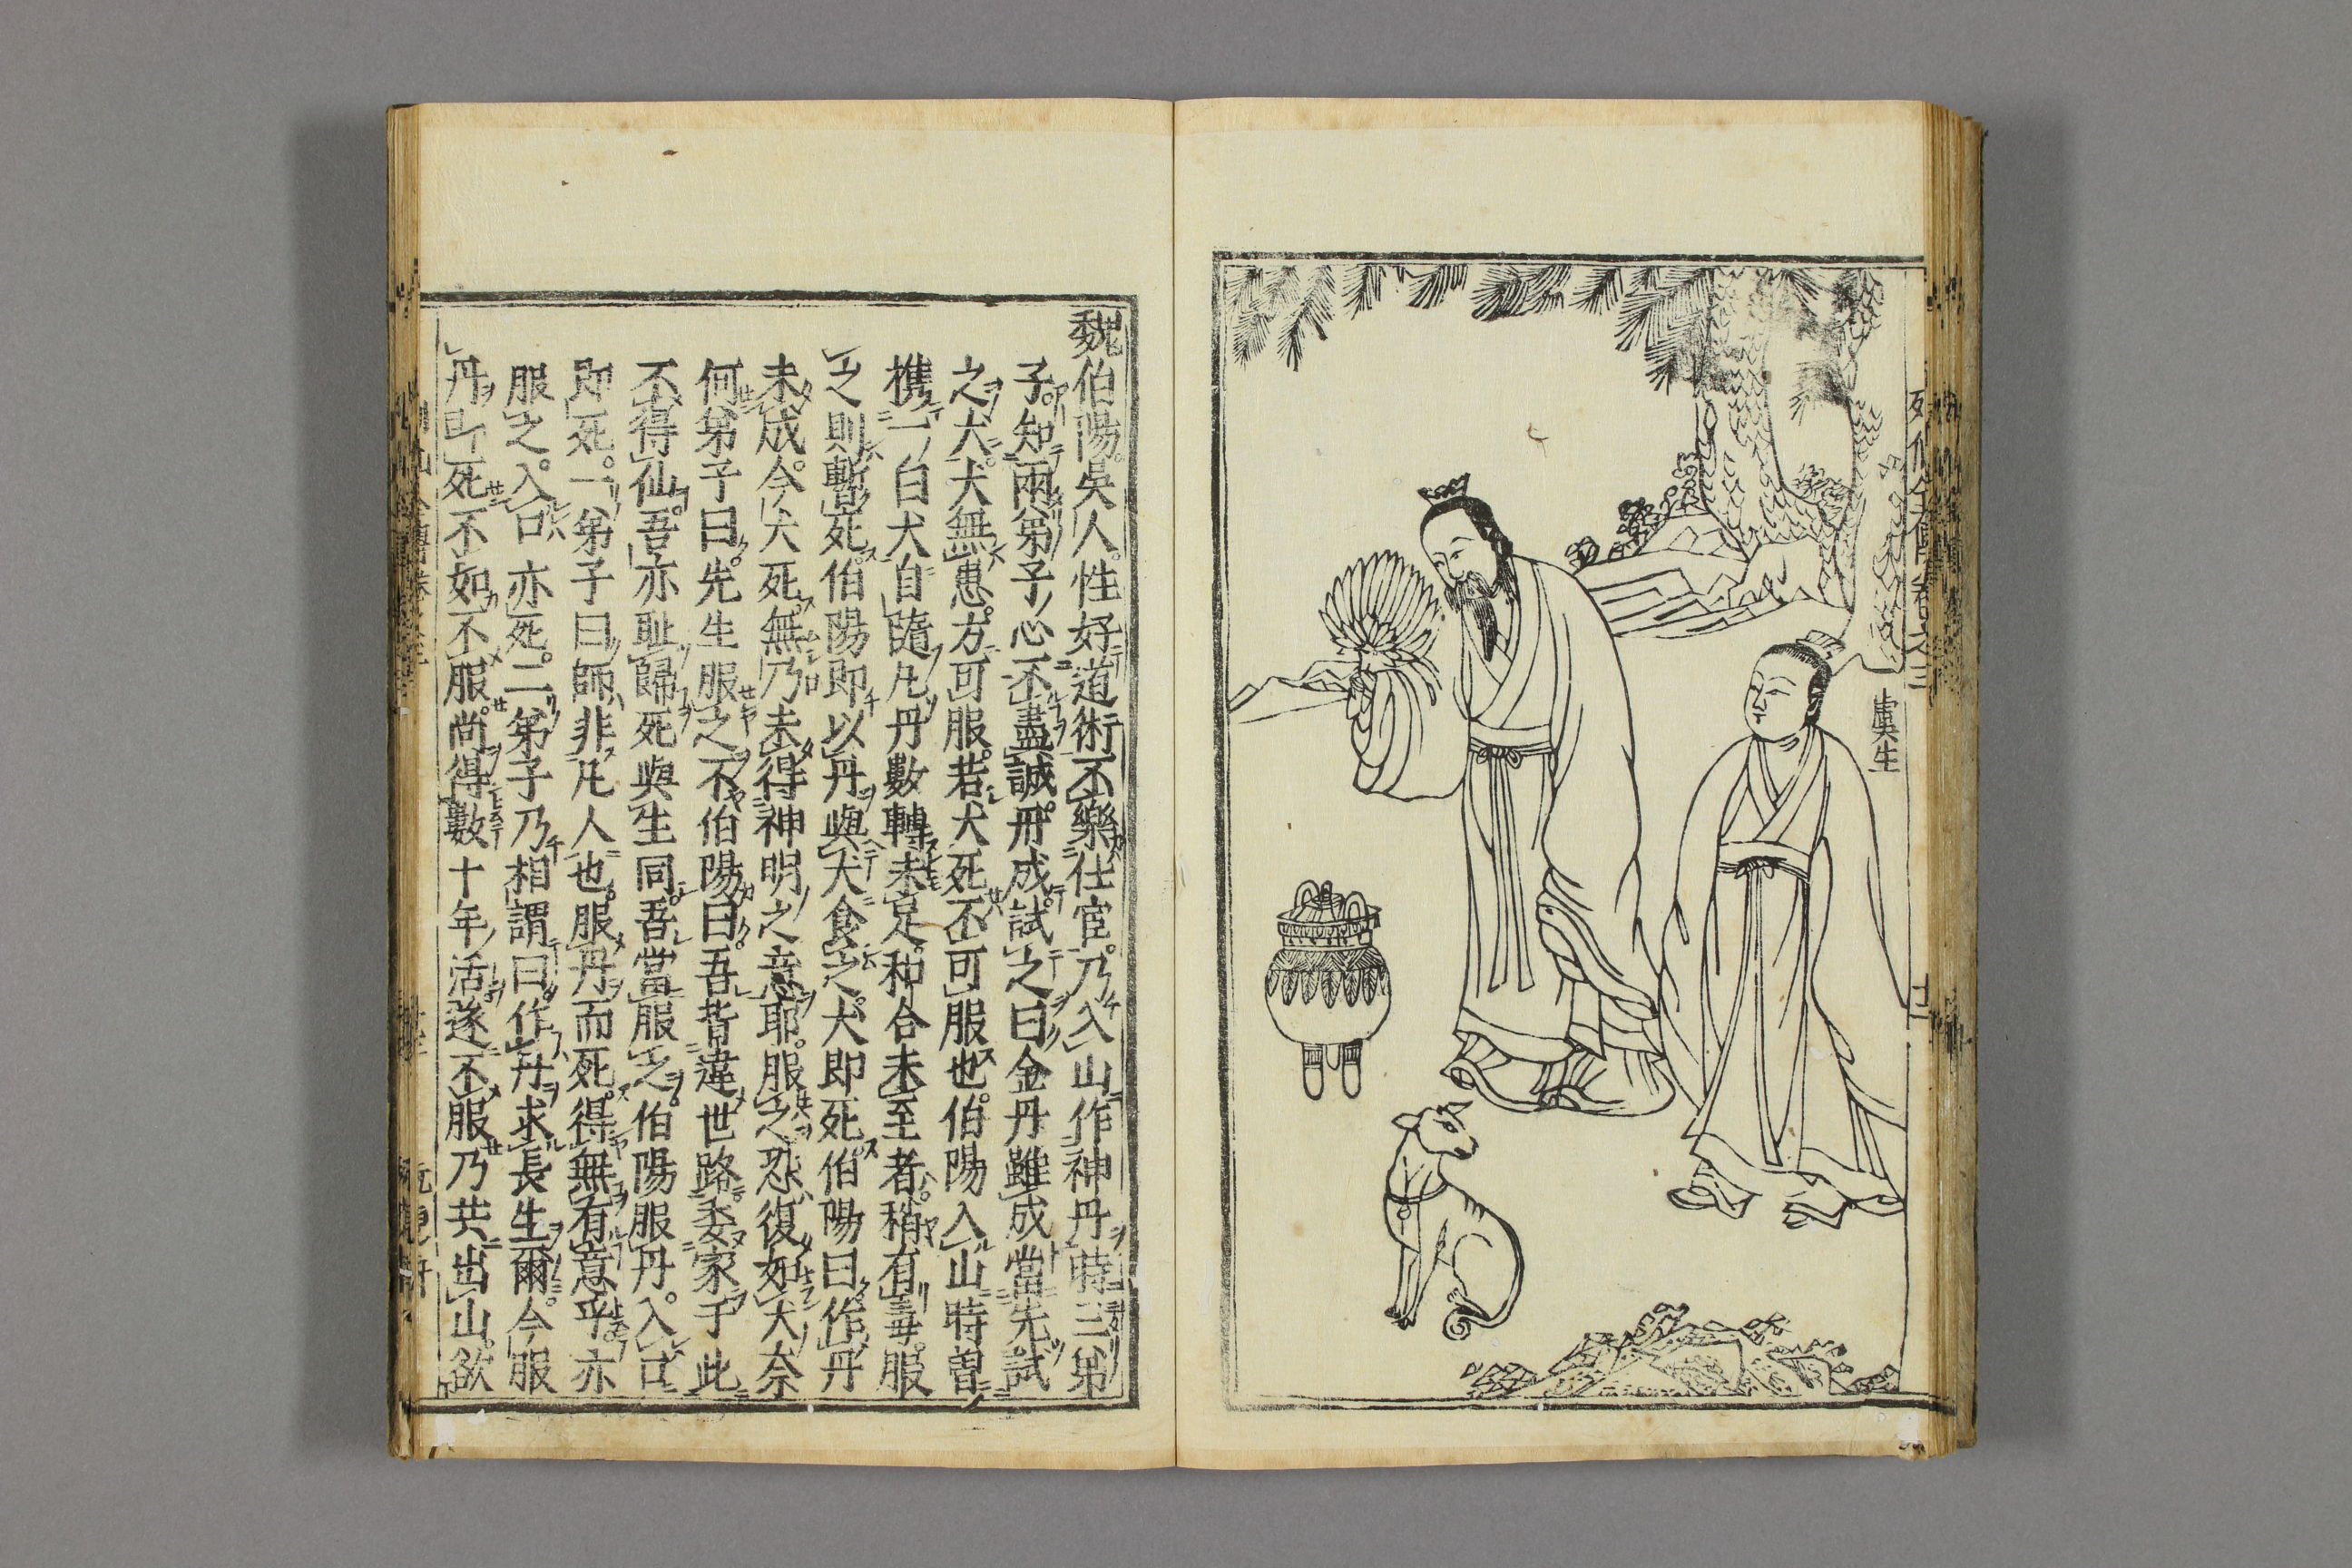 虞生
魏伯陽。吳人。性好道術。不樂仕宦。乃入山作神丹。時三弟
子。知兩弟子心不盡誠。丹成。試之曰。金丹雖成。當先試
之犬。犬無患。方可服。若犬死。不可服也。伯陽入山時。曽
携一白犬自隨。凡丹數轉未足。和合未至者。稍有毒。服
之則暫死。伯陽即以丹與犬食之。犬即死。伯陽曰。作丹
未成。今犬死。無乃未得神明之意耶。服之恐復如犬奈
何。弟子曰。先生服之不。伯陽曰。吾昔違世路。委家于此。
不得仙。吾亦耻歸。死與生同。吾當服之。伯陽服丹。入口
即死。一弟子曰。師非凡人也。服丹而死。得無有意乎。亦
服之。入口亦死。二弟子乃相謂曰。作丹求長生爾。今服
丹即死。不如不服。尚得數十年活。遂不服。乃共出山。欲